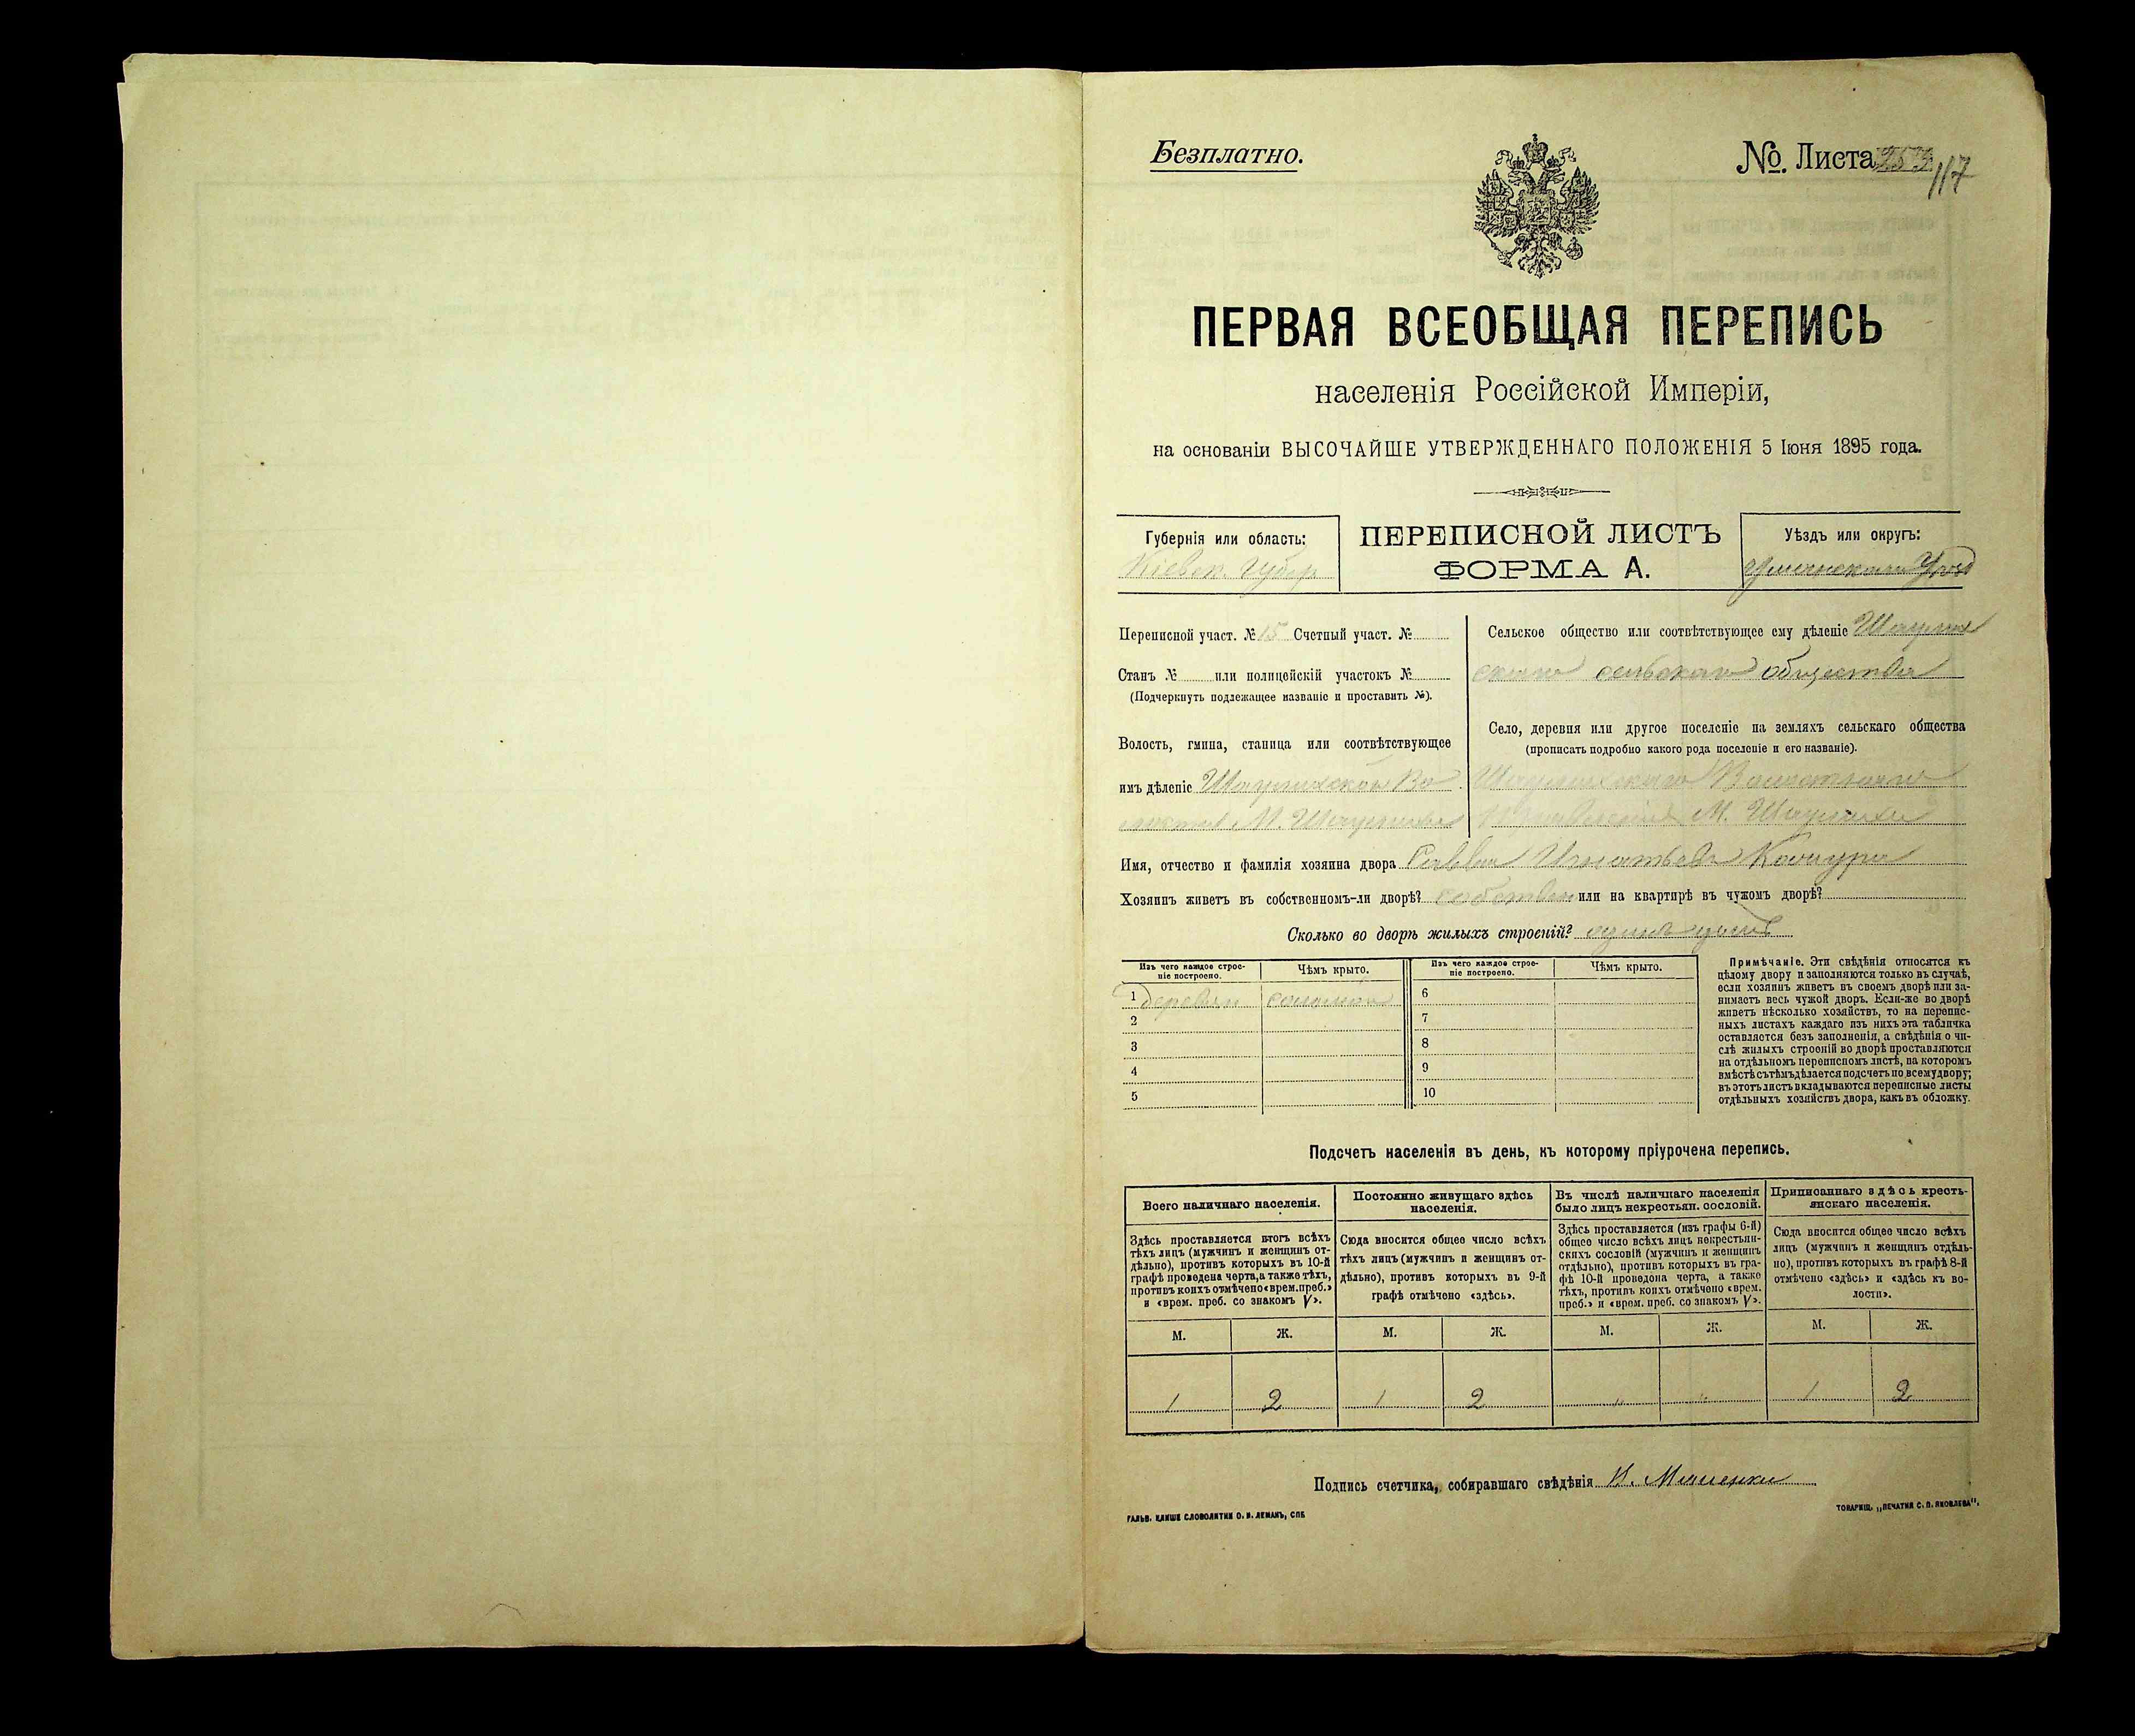 Безплатно.
№. Листа 117
ПЕРВАЯ ВСЕОБЩАЯ ПЕРЕПИСЬ
населенія Россійской Имперіи,
на основаніи ВЫСОЧАЙШЕ УТВЕРЖДЕННАГО ПОЛОЖЕНІЯ 5 Іюня 1895 года.
Губернія или область:
Кіевск. Губер
ПЕРЕПИСНОЙ ЛИСТЪ
ФОРМА А.
Уѣздъ или округъ:
Переписной участ. № 15 Счетный участ. №
Станъ № или полицейскій участокъ №
(Подчеркнуть подлежащее названіе и проставить №).
Волость, гмина, станица или соотвѣтствующее
имъ дѣленіе
М.
Сельское общество или соотвѣтствующее ему дѣленіе
сельскаго общества
Село, деревня или другое поселеніе на земляхъ сельскаго общества
(прописать подробно какого рода поселеніе и его названіе).
М.
Имя, отчество и фамилія хозяина двора
Хозяинъ живетъ въ собственномъ-ли дворѣ? собствен или на квартирѣ въ чужомъ дворѣ?
Сколько во дворѣ жилыхъ строеній? одинъ
Изъ чего каждое строе-
ніе построено.
Чѣмъ крыто.
Изъ чего каждое строе-
ніе построено.
Чѣмъ крыто.
1 деревян соломой
2
3
4
5
6
7
8
9
10
Примѣчаніе. Эти свѣдѣнія относятся къ
цѣлому двору и заполняются только въ случаѣ,
если хозяинъ живетъ въ своемъ дворѣ или за-
нимаетъ весь чужой дворъ. Если-же во дворѣ
живетъ нѣсколько хозяйствъ, то на перепис-
ныхъ листахъ каждаго изъ нихъ эта табличка
оставляется безъ заполненія, а свѣдѣнія о чи-
слѣ жилыхъ строеній во дворѣ проставляются
на отдѣльномъ переписномъ листѣ, на которомъ
вмѣстѣ съ тѣмъ дѣлается подсчетъ по всему двору;
въ этотъ листъ вкладываются переписные листы
отдѣльныхъ хозяйствъ двора, какъ въ обложку.
Подсчетъ населенія въ день, къ которому пріурочена перепись.
Всего наличнаго населенія.
Здѣсь проставляется итогъ всѣхъ
тѣхъ лицъ (мужчинъ и женщинъ от-
дѣльно), противъ которыхъ въ 10-й
графѣ проведена черта, а также тѣхъ,
противъ коихъ отмѣчено «врем. преб.»
и «врем. преб. со знакомъ V».
Постоянно живущаго здѣсь
населенія.
Сюда вносится общее число всѣхъ
тѣхъ лицъ (мужчинъ и женщинъ от-
дѣльно), противъ которыхъ въ 9-й
графѣ отмѣчено «здѣсь».
Въ числѣ наличнаго населенія
было лицъ некрестьян. сословій.
Здѣсь проставляется (изъ графы 6-й)
общее число всѣхъ лицъ некрестьян-
скихъ сословій (мужчинъ и женщинъ
отдѣльно), противъ которыхъ въ гра-
фѣ 10-й проведена черта, а также
тѣхъ, противъ коихъ отмѣчено «врем.
преб.» и «врем. преб. со знакомъ V».
Приписаннаго здѣсь кресть-
янскаго населенія.
Сюда вносится общее число всѣхъ
лицъ (мужчинъ и женщинъ отдѣль-
но), противъ которыхъ въ графѣ 8-й
отмѣчено «здѣсь» и «здѣсь къ во-
лости».
М. Ж. М. Ж. М. Ж. М. Ж.
1 2 1 2 " " 1 2
Подпись счетчика, собиравшаго свѣдѣнія
ГАЛЬВ. КЛИШЕ СЛОВОЛИТНИ О. И. ЛЕМАНЪ, СПБ
ТОВАРИЩ. „ПЕЧАТНЯ С. П. ЯКОВЛЕВА".